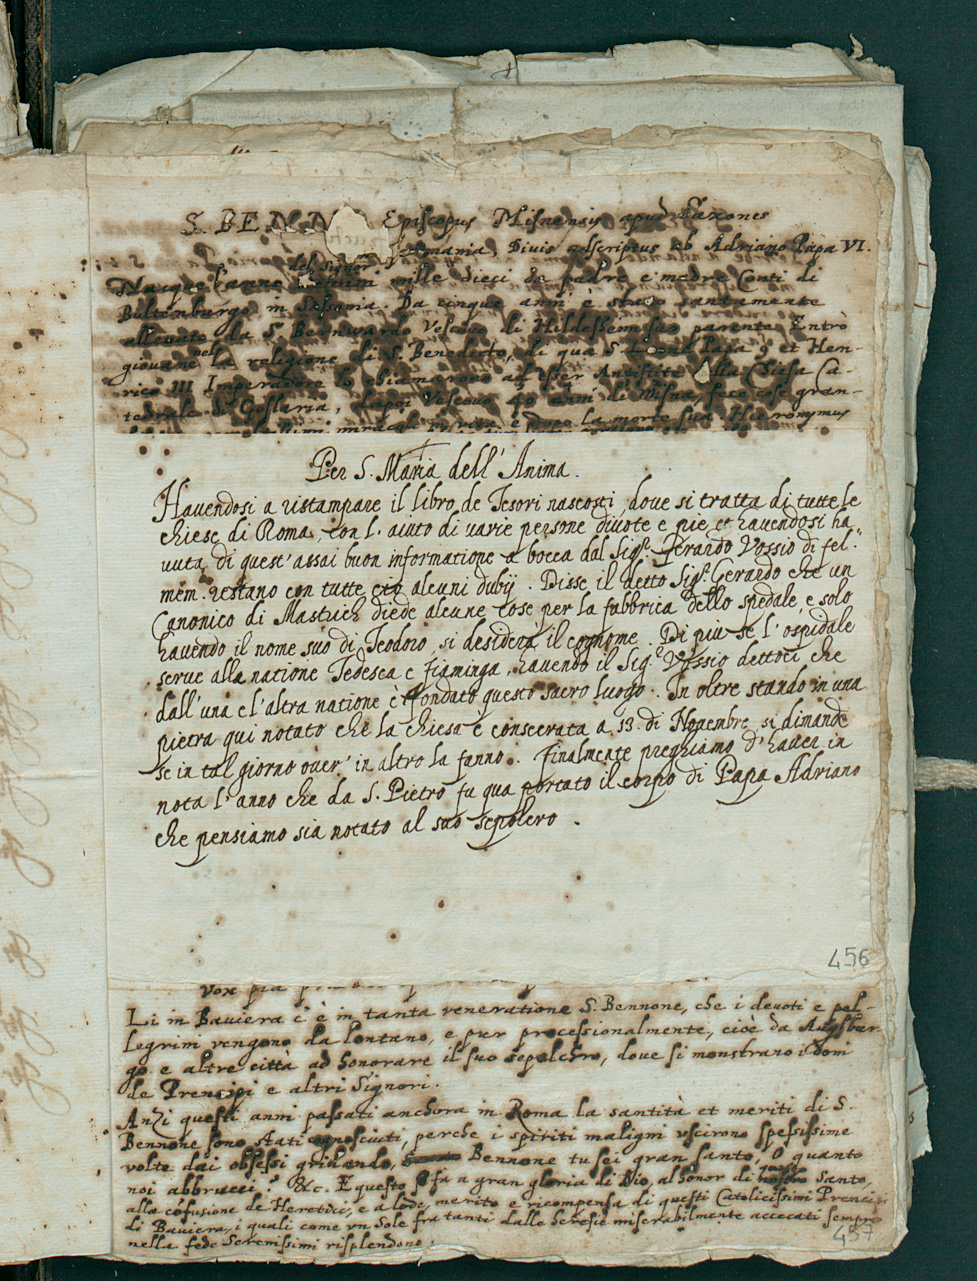 S. BEN N Episcopus Misnensis apud Saxones
Divis adscriptus ab Adriano Papa VI.
del Signor
Nacque l'anno mille dieci da padre e madre Conti di
Bultenburgo in Sassonia. Da cinque anni è stato santamente
allevato da S. Bernwardo Vescovo di Hildessem suo parente. Entrò
giovane nella religione di S. Benedetto, di qua S. Papa 9 et Hen-
rico III Imperadore lo chiamarono ad esser Antistite alla Chiesa Ca-
tedrale di Goslaria, dapoi Vescovo 40 anni di Misna, fece cose gran-
miracoli in vita e dopo la morte sua Hieronymus
Per S. Maria dell' Anima.
Havendosi a ristampare il libro de Tesori nascosti, dove si tratta di tutte le
chiese di Roma, con l' aiuto di varie persone divote e pie, et havendosi ha
vuta di quest' assai buon informatione a bocca dal Sigr. Gerardo Vossio di fel.
mem. restano con tutte ciò alcuni dubij. Disse il detto Sigr. Gerardo che un
Canonico di Mastrich diede alcune cose per la fabbrica dello spedale, e solo
havendo il nome suo di Teodoro, si desidera il cognome. Di più se l' ospidale
serve alla natione Tedesca e Fiaminga, havendo il Sigr. Vossio dettoci che
dall' una e l' altra natione è fondato questo sacro luogo. In oltre stando in una
pietra qui notato che la chiesa è consecrata a 23. di Novembre, si dimanda
se in tal giorno over' in altro la fanno. Finalmente preghiamo d' haver in
nota l' anno che da S. Pietro fu qua portato il corpo di Papa Adriano
che pensiamo sia notato al suo sepolcro.
456
vox pia
Li in Baviera c' è in tanta veneratione S. Bennone, che i devoti e pel-
legrini vengono da lontano, e pur processionalmente, cioè da Augsbur-
go e altre città ad honorare il suo sepolchro, dove si monstrano i doni
de Prencipi e altri Signori.
Anzi questi anni passati anchora in Roma la santità et meriti di S.
Bennone sono stati cognosciuti, perche i spiriti maligni uscirono spessissime
volte dai obsessi gridando, Bennone tu sei gran santo, O quanto
noi abbrucci? &c. E questo fa a gran gloria di Dio, al honor di questo Santo,
alla cōfusione de Heretici, e a lode, merito e ricompensa di questi Catolicissimi Prencipi
di Baviera, i quali come un Sole fra tanti dalle heresie miserabilmente accecati sempre
nella fede Serenissimi risplendono.
457